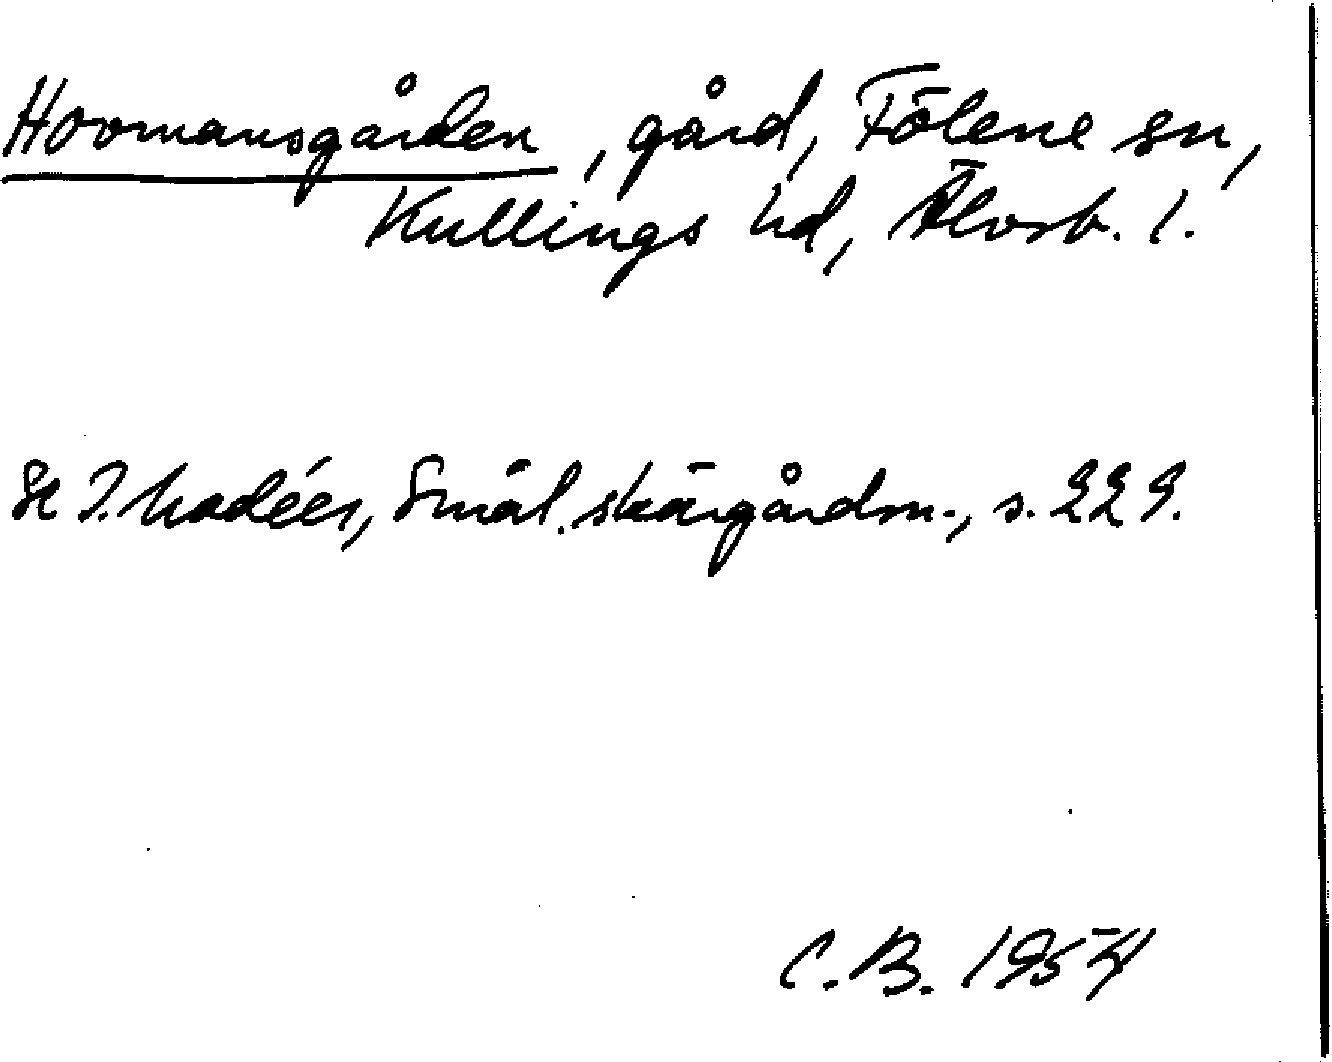 Hovmansgården, gård, Fölene sn,
Kullings hd, Älvsb. l.
Se I. Modéer, Smål. skärgårdsn., s. 229.
C.B. 1954